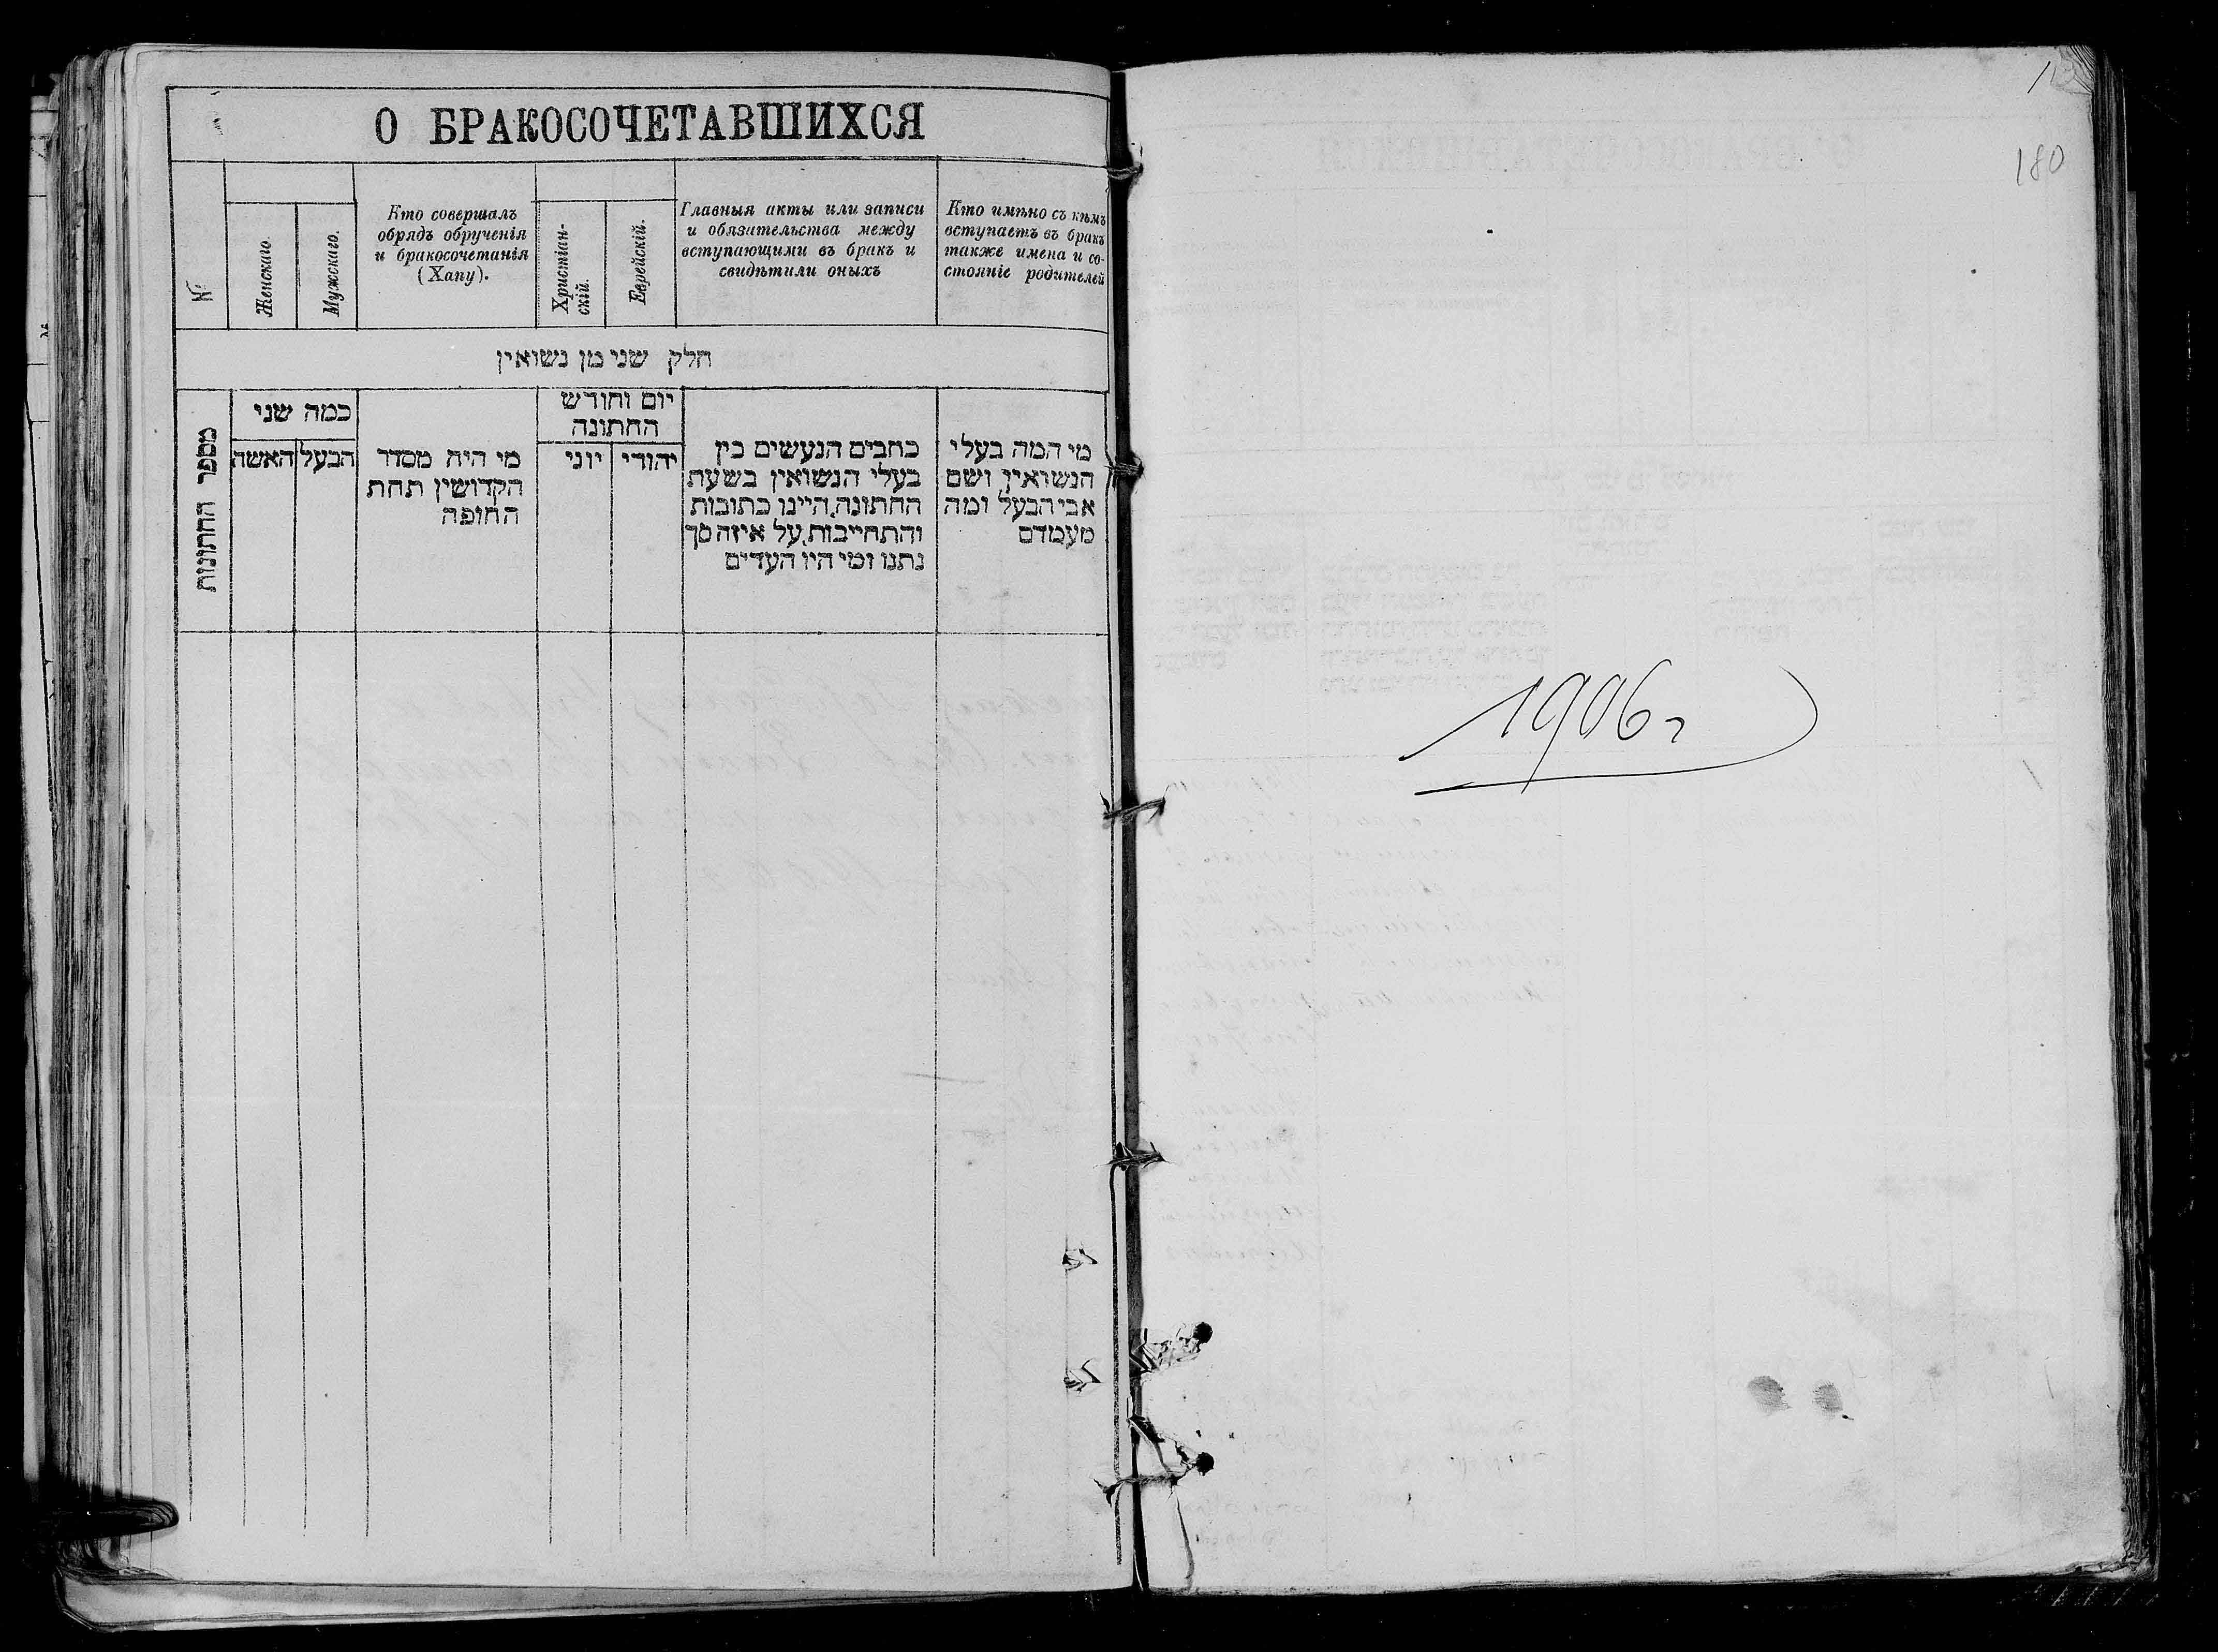 О БРАКОСОЧЕТАВШИХСЯ
№
Женскаго.
Мужскаго.
Кто совершалъ
обрядъ обрученія
и бракосочетанія
(Хапу).
Христіан-
скій.
Еврейскій.
Главныя акты или записи
и обязательства между
вступающими въ бракъ и
свидѣтили оныхъ
Кто имѣно съ кѣмъ
вступаетъ въ бракъ
также имена и со-
стояніе родителей
חלק שני מן נשואין
מספר החתונות
כמה שני
האשה
הבעל
מי היה מסדר
הקדושין תחת
החופה
יום וחודש
החתונה
יוני
יהודי
כתבים הנעשים בין
בעלי הנשואין בשעת
החתונה, היינו כתובות
והתחייבות, על איזה סך
נתנו ומי היו העדים
מי המה בעלי
הנשואין ושם
אבי הבעל ומה
מעמדם
180
1906 г